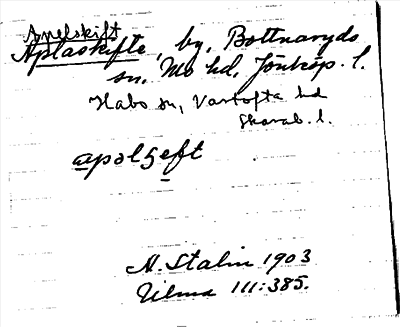 Apelskift
Aplaskifte, by, Bottnaryds
sn, Mo hd, Jönköp. l.
Habo sn, Vartofta hd
Skarab. l.
apalʒeft
N. Stalin 1903
Vilma 111:385.